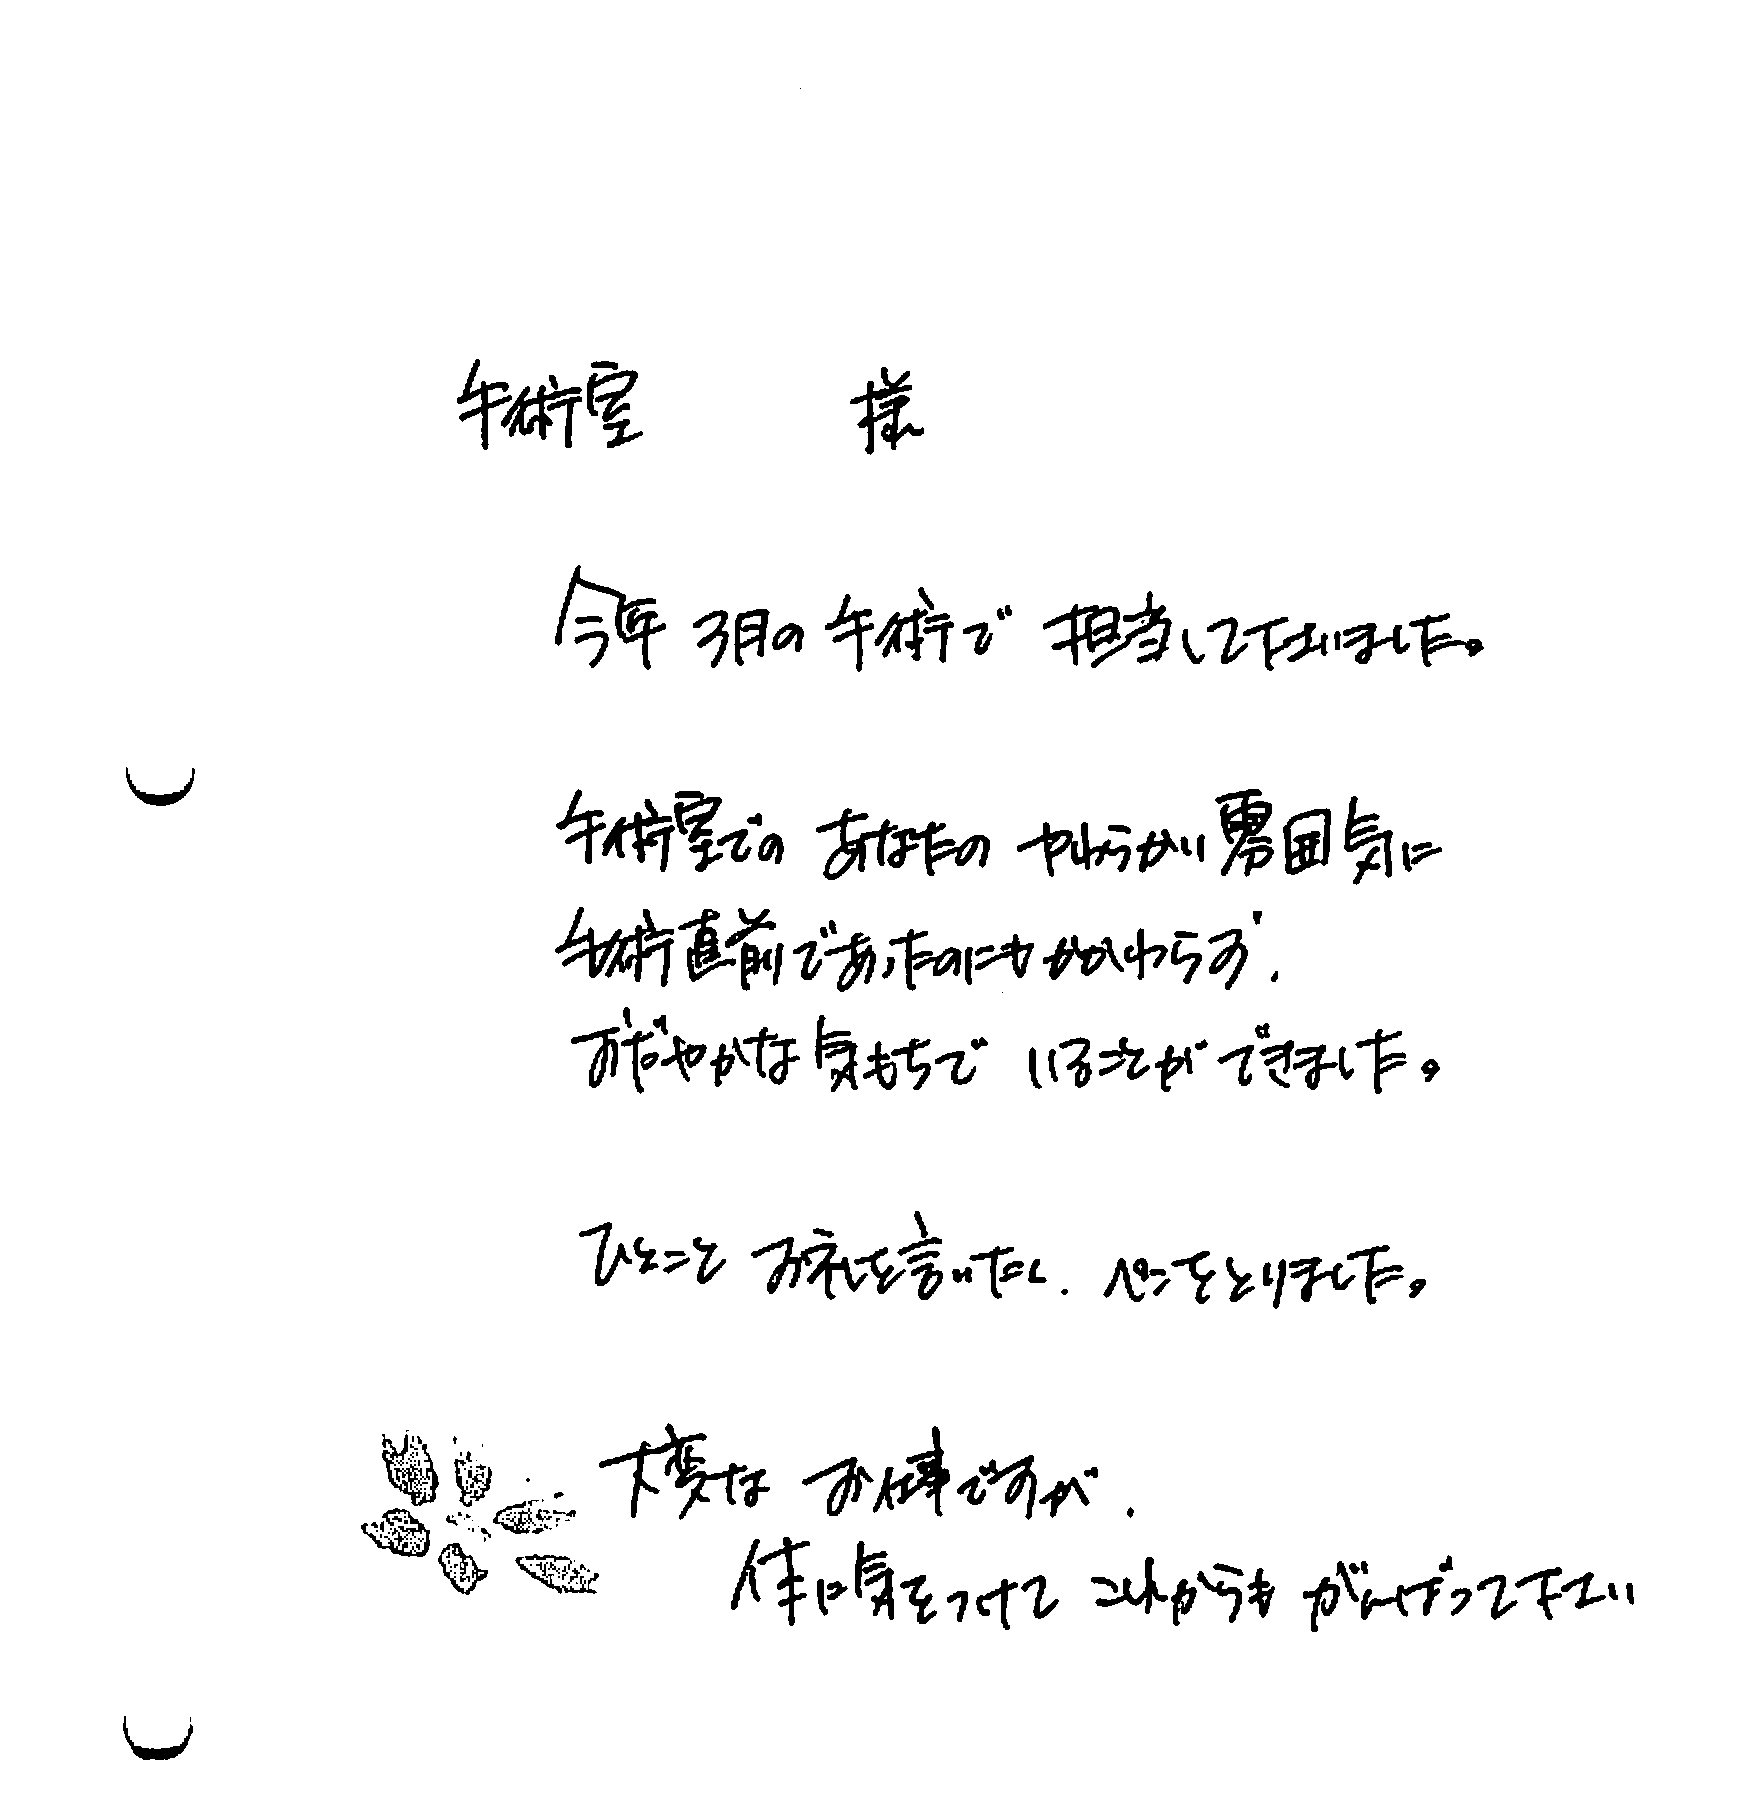 手術室 様
今年3月の手術で担当して下さいました。
手術室でのあなたのやわらかい雰囲気に
手術直前であったのにもかかわらず、
おだやかな気もちでいることができました。
ひとことお礼を言いたく、ペンをとりました。
大変なお仕事ですが、
体に気をつけてこれからもがんばって下さい